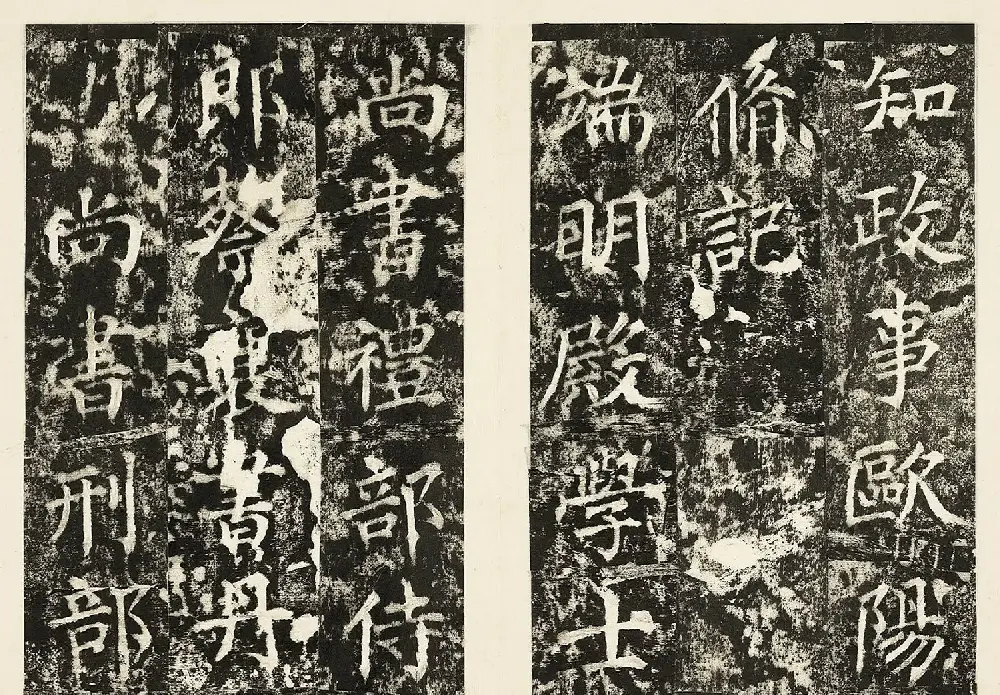 知政事歐陽
脩記
端明殿學士
尚書禮部侍
郎蔡襄書丹
尚書刑部